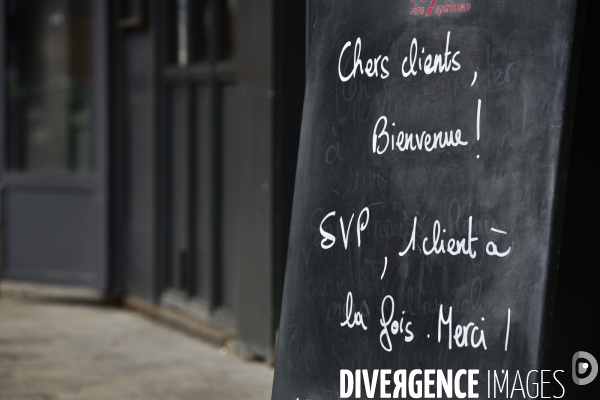 Chers clients,
Bienvenue !
SVP, 1 client à
la fois. Merci !
DIVERGENCE IMAGES